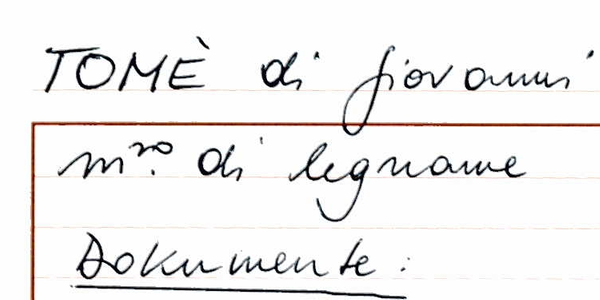 TOMÈ di Giovanni
mro. di legname
Dokumente: